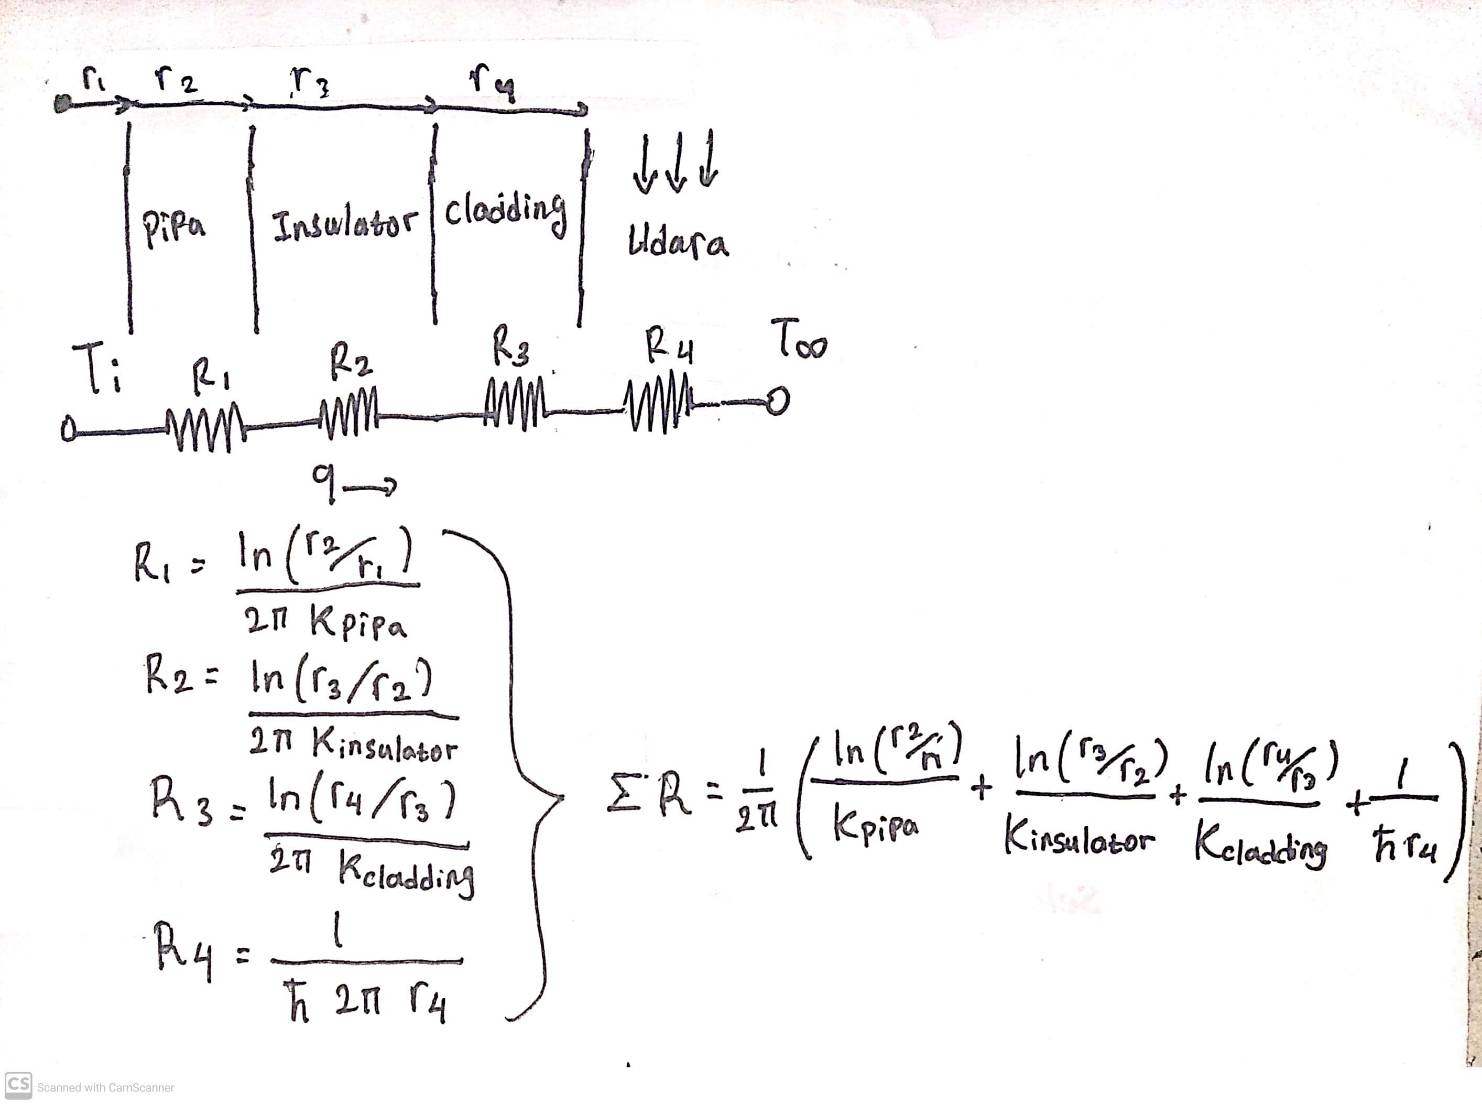 r1 r2 r3 r4
Pipa Insulator Cladding Udara
Ti R1 R2 R3 R4 T∞
q →
R1 = ln(r2/r1) / 2π Kpipa
R2 = ln(r3/r2) / 2π Kinsulator
R3 = ln(r4/r3) / 2π Kcladding
R4 = 1 / ħ 2π r4
ΣR = 1/2π ( ln(r2/r1) / Kpipa + ln(r3/r2) / Kinsulator + ln(r4/r3) / Kcladding + 1 / ħ r4 )
CS Scanned with CamScanner